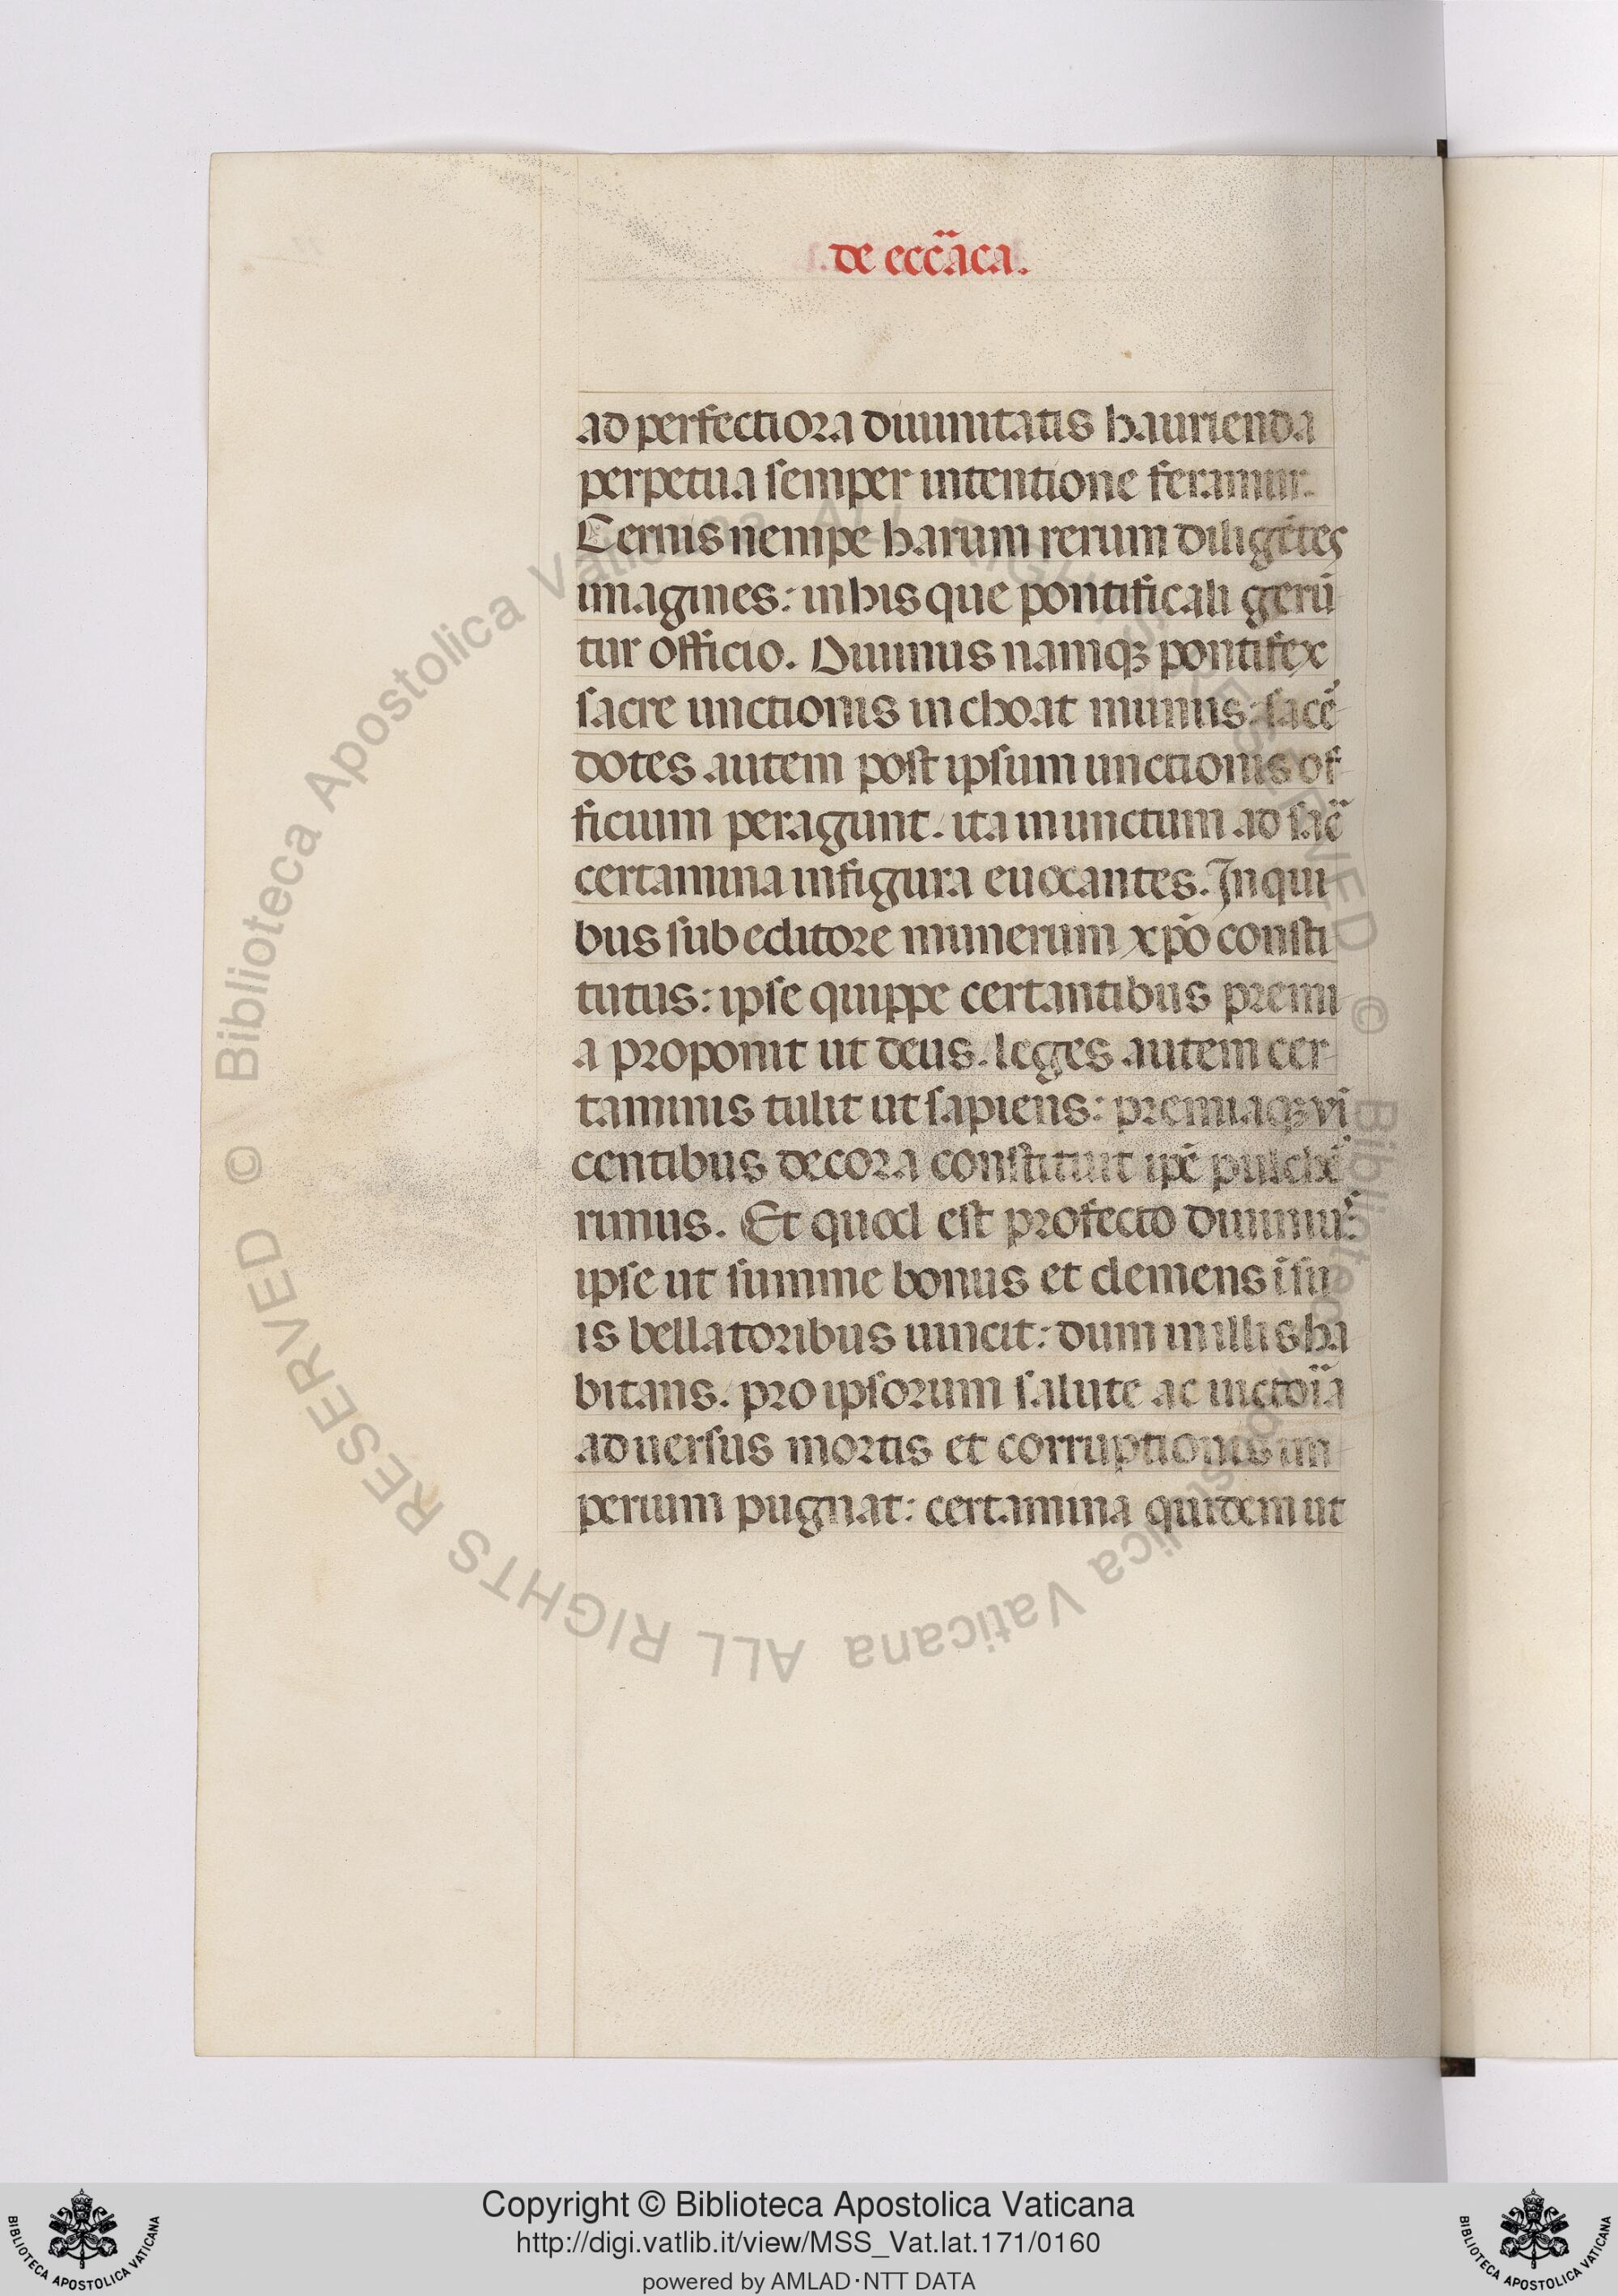 de ecc̄aca.
ad perfectiora diuinitatis haurienda
perpetua semper intentione feramur.
Cernis nempe harum rerum diligētes
imagines: in his que pontificali gerū
tur officio. Diuinus namqꝫ pontifex
sacre unctionis inchoat munus: sacē
dotes autem post ipsum unctionis of
ficium peragunt. ita inunctum ad sac̄
certamina in figura euocantes. In qui
bus sub editore munerum xp̄o consti
tutus: ipse quippe certantibus premi
a proponit ut deus. leges autem cer
taminis tulit ut sapiens: premiaqꝫ vī
centibus decora constituit ip̄e pulche᷑
rimus. Et quod est profecto diuinius
ipse ut summe bonus et clemens ī su
is bellatoribus uincit: dum in illis ha
bitans. pro ipsorum salute ac uictoīa
aduersus mortis et corruptionis im
perium pugnat: certamina quidem ut
© Biblioteca Apostolica Vaticana ALL RIGHTS RESERVED
Copyright © Biblioteca Apostolica Vaticana
http://digi.vatlib.it/view/MSS_Vat.lat.171/0160
powered by AMLAD·NTT DATA
BIBLIOTECA APOSTOLICA VATICANA
BIBLIOTECA APOSTOLICA VATICANA